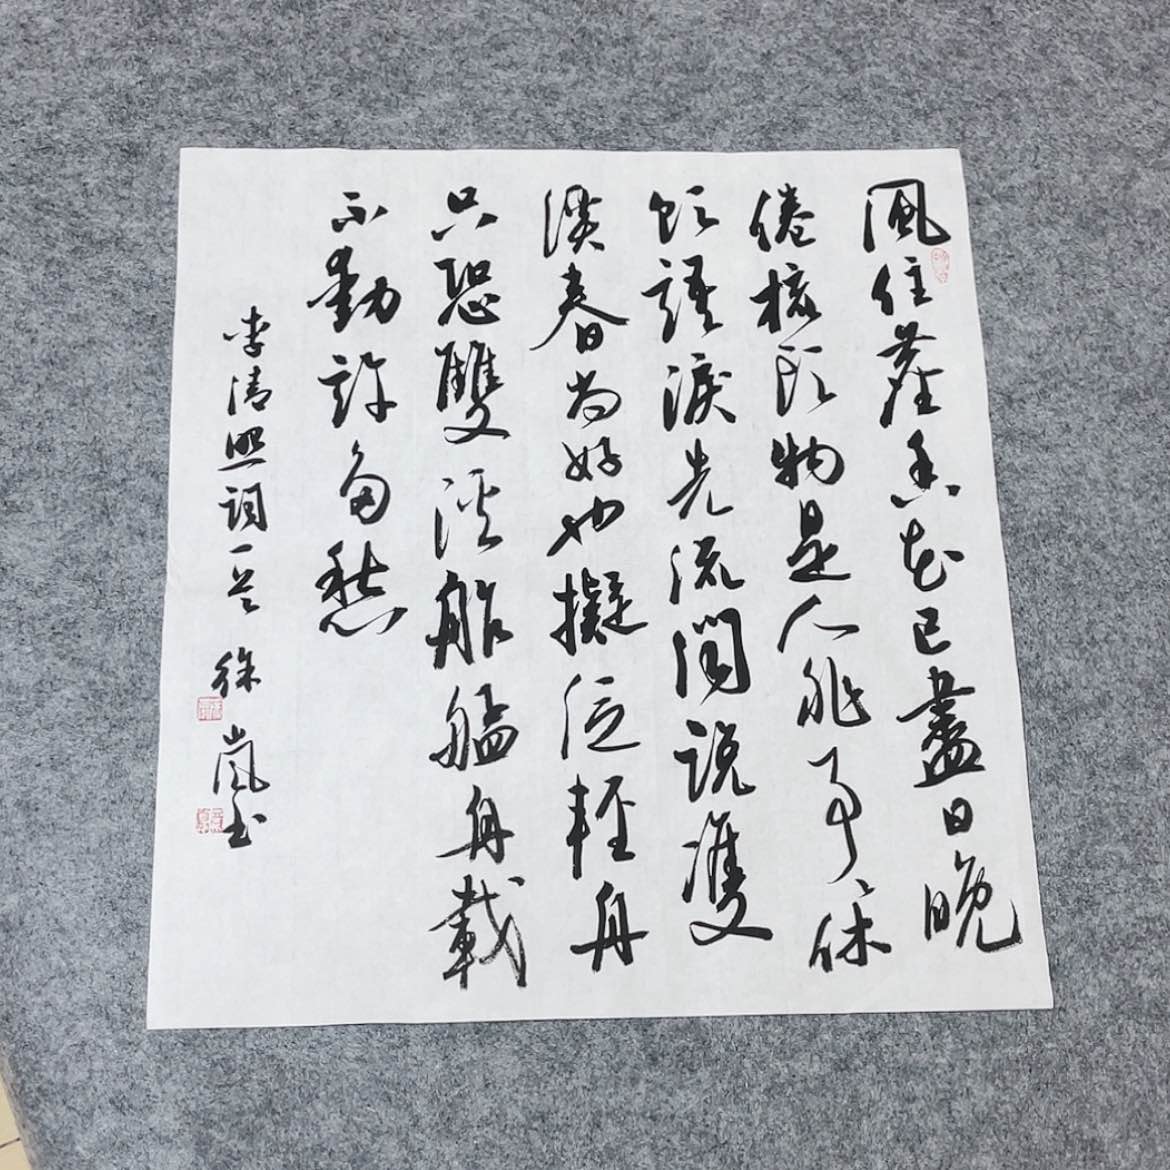 風住塵香花已盡日晚
倦梳頭物是人非事〻休
欲語淚先流聞說雙
溪春尚好也擬泛輕舟
只恐雙溪舴艋舟載
不動許多愁
李清照詞一首 徐嵐书